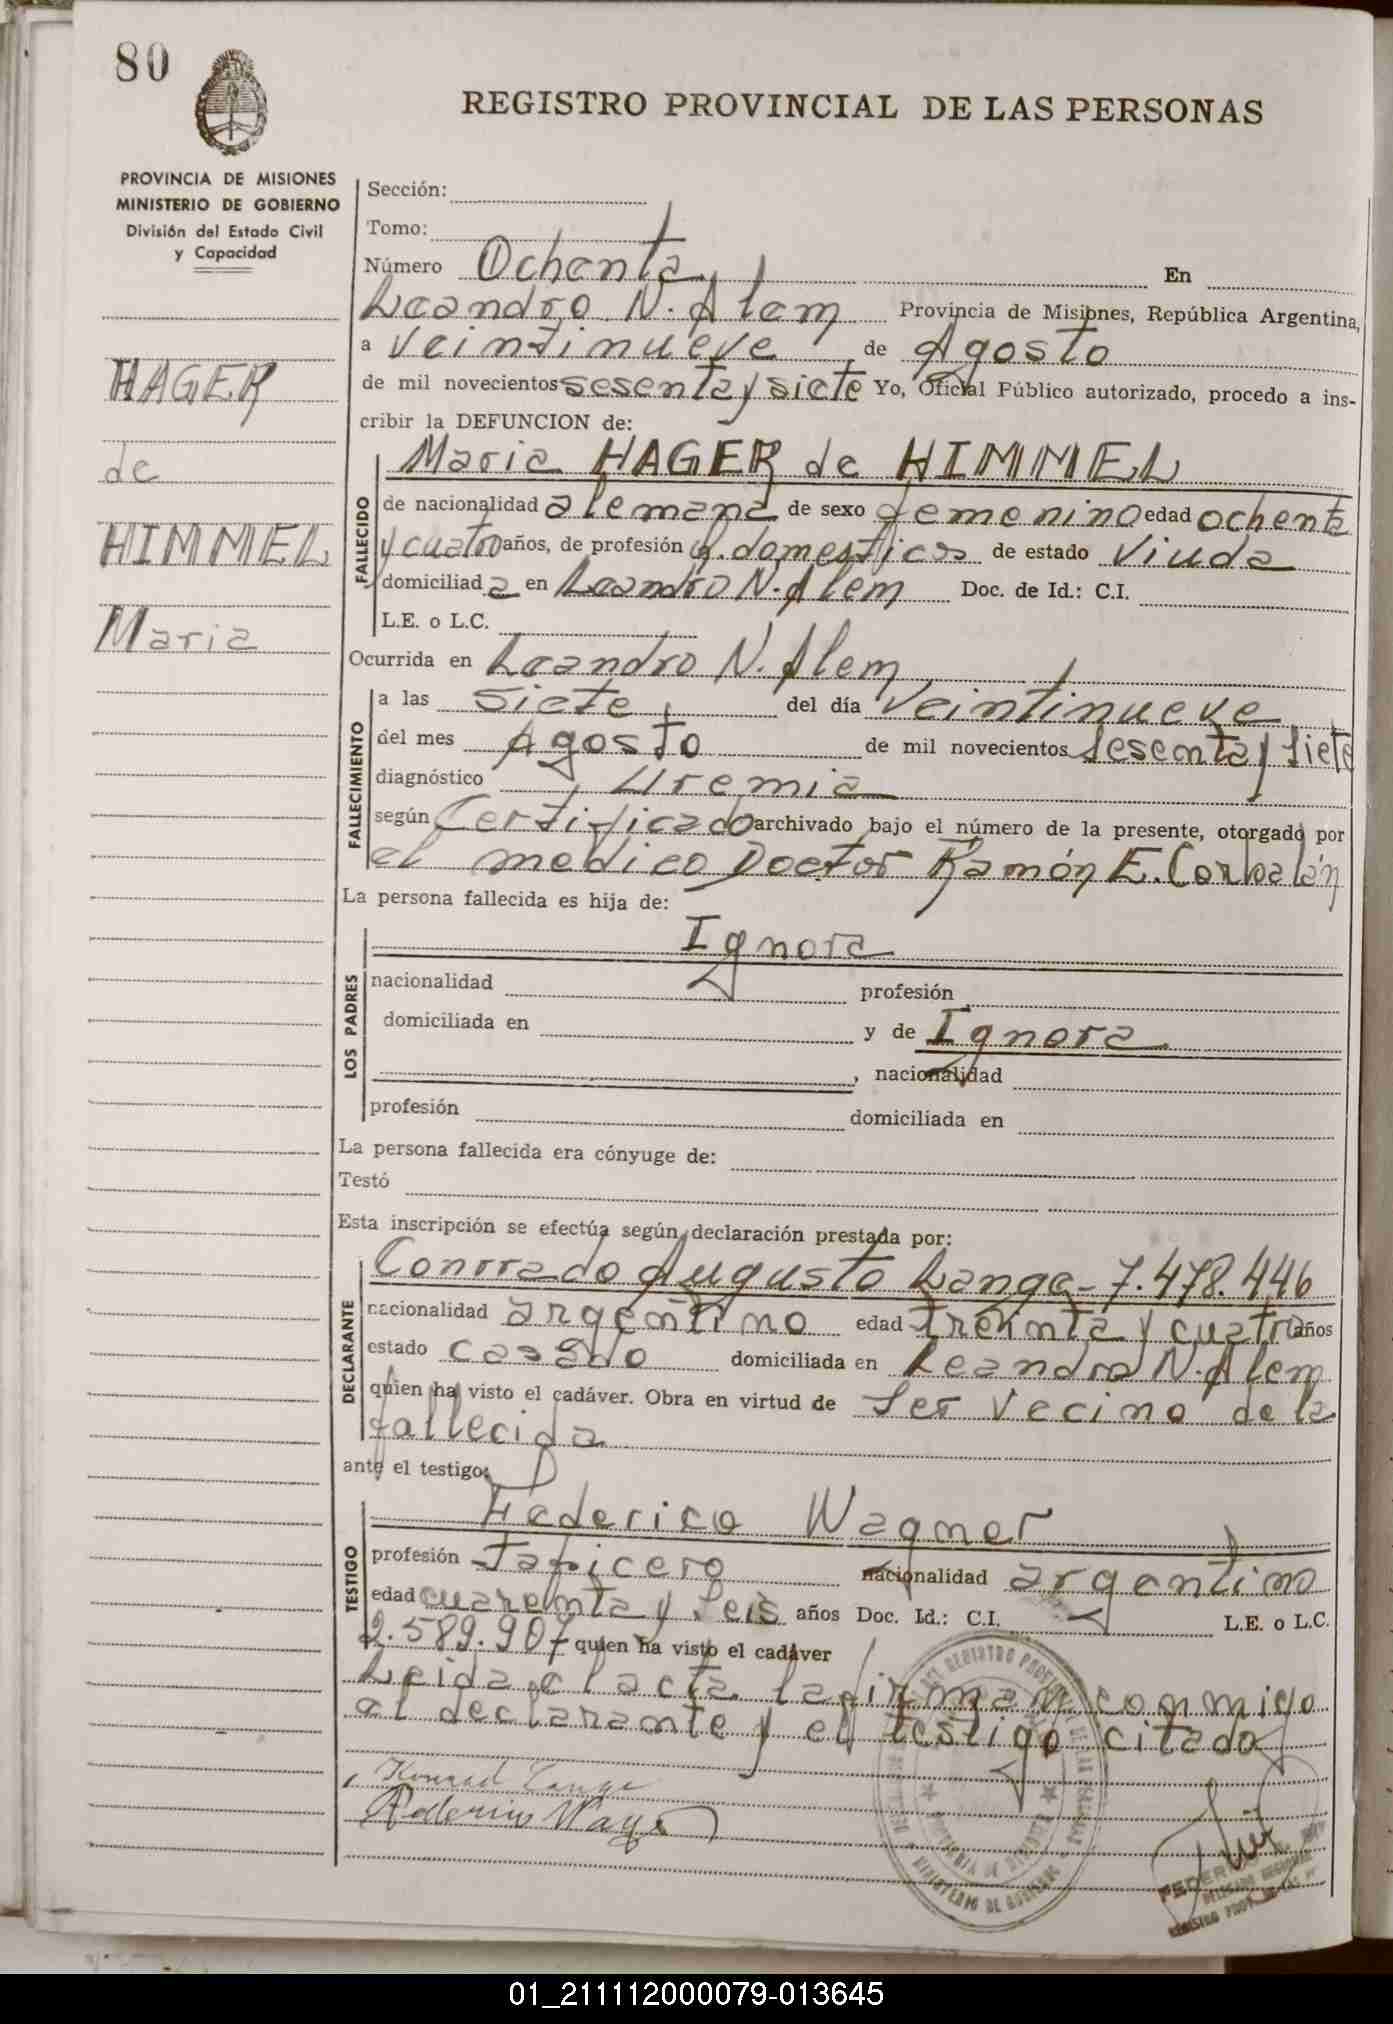 80
REGISTRO PROVINCIAL DE LAS PERSONAS
PROVINCIA DE MISIONES
MINISTERIO DE GOBIERNO
División del Estado Civil
y Capacidad
HAGER
de
HIMMEL
Maria
Sección:
Tomo:
Número Ochenta En
Leandro N. Alem Provincia de Misiones, República Argentina,
a veintinueve de Agosto
de mil novecientos sesenta y siete Yo, Oficial Público autorizado, procedo a ins-
cribir la DEFUNCION de:
FALLECIDO
Maria HAGER de HIMMEL
de nacionalidad alemana de sexo femenino edad ochenta
y cuatro años, de profesión q. domesticos de estado viuda
domiciliad a en Leandro N. Alem Doc. de Id.: C.I.
L.E. o L.C.
Ocurrida en Leandro N. Alem
FALLECIMIENTO
a las siete del día veintinueve
del mes Agosto de mil novecientos sesenta y siete
diagnóstico Uremia
según Certificado archivado bajo el número de la presente, otorgado por
el medico Doctor Ramón E. Corbalán
La persona fallecida es hija de:
LOS PADRES
Ignora
nacionalidad profesión
domiciliada en y de Ignora
, nacionalidad
profesión domiciliada en
La persona fallecida era cónyuge de:
Testó
Esta inscripción se efectúa según declaración prestada por:
DECLARANTE
Conrrado Augusto Lange - 7.478.446
nacionalidad argentino edad treinta y cuatro años
estado casado domiciliada en Leandro N. Alem
quien ha visto el cadáver. Obra en virtud de ser vecino de la
fallecida
ante el testigo:
TESTIGO
Federico Wagner
profesión Tapicero nacionalidad argentino
edad cuarenta y seis años Doc. Id.: C.I. L.E. o L.C.
2.589.907 quien ha visto el cadáver
Leida el acta la firman conmigo
el declarante y el testigo citado
Konrad Lange
Federico Wagner
01_211112000079-013645